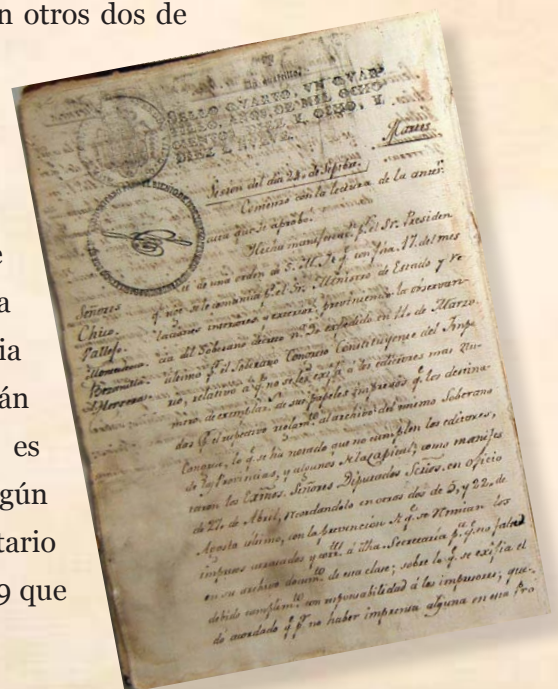 n otros dos de
e
a
ia
án
es
gún
tario
9 que
SELLO QVARTO, VN QVAR
TILLO, AÑOS DE MIL OCHO
CIENTOS DIEZ Y OCHO, Y
DIEZ Y NUEVE.
Sesion del dia 23 de Septbre.
Comenzo con la lectura de la anter.
acta que se aprobó.
Hecha manifestacn. p.r el Sr. Presiden
te de una orden de S. M. Y. q.e con fha. 17 del mes
q.e rige le comunica el Sr. Ministro de Estado y re
laciones interiores y exteriores previniendo la observan
cia del Soberano decreto n.o expedido en 14 de Marzo
último p.r el Soberano Congreso Constituyente del Impe
rio, relativo a q.e no se les exija a los editores mas nu
mero de exemplar.s de sus papeles impresos q.e los destina
dos p.r el respectivo reglam.to al archivo del mismo Soberano
Congreso, lo q.e se ha notado que no cumplen los editores,
de las Provincias, y algunos de la Capital; como manifes
taron los Exmos. Señores Diputados Srios. en oficio
de 27 de Abril, recordandolo en otros dos de 5, y 22 de
Agosto ultimo, con la prevencion de q.e se remitan los
impresos atrasados y á dha. Secretaría p.a q.e no falte
en su archivo docum.to de esa clase; sobre lo q.e se exija el
debido cumplim.to con responsabilidad á los impresores; que
dó acordado q.e p.r no haber imprenta alguna en esta Pro
Señores
Chico
Vallejo
Hernandez
Bezanilla
Herrera